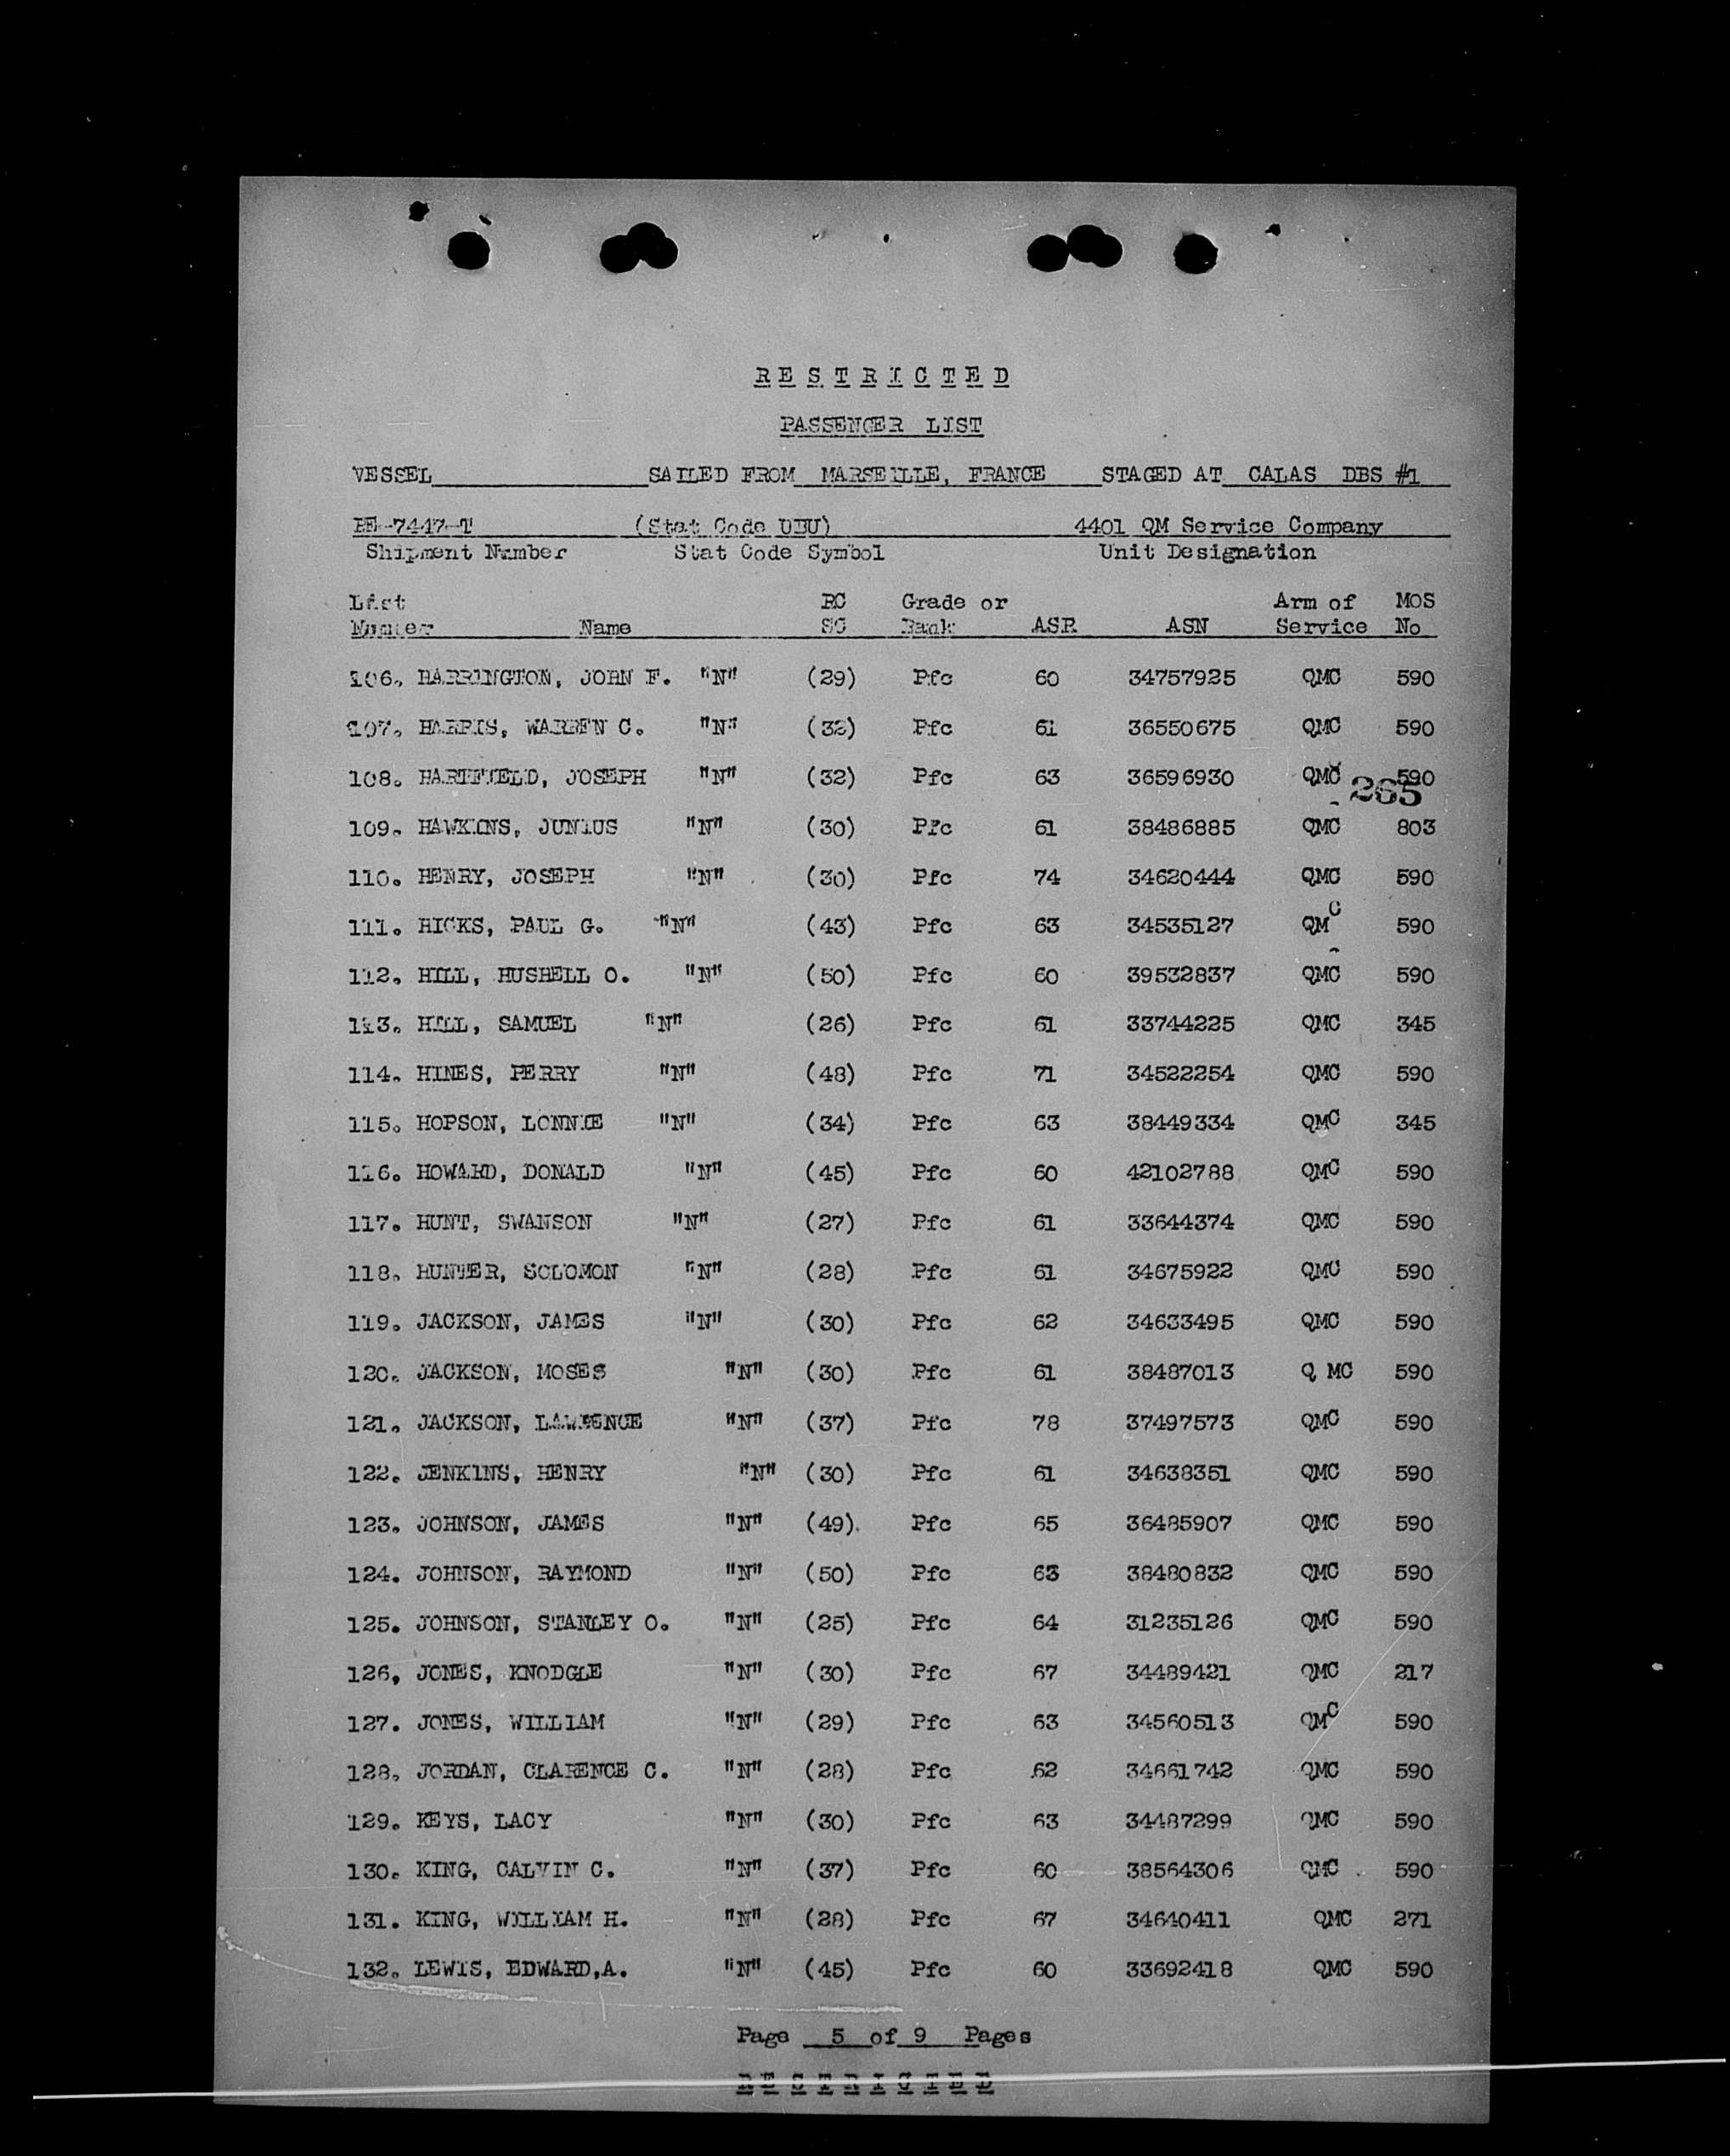 RESTRICTED
PASSENGER LIST
VESSEL SAILED FROM MARSEILLE, FRANCE STAGED AT CALAS DBS #1
RE-7447-T (Stat Code UBU) 4401 QM Service Company
Shipment Number Stat Code Symbol Unit Designation
List RC Grade or Arm of MOS
Number Name SC Rank ASR ASN Service No
106. HARRINGTON, JOHN F. "N" (29) Pfc 60 34757925 QMC 590
107. HARRIS, WARREN C. "N" (32) Pfc 61 36550675 QMC 590
108. HARTFIELD, JOSEPH "N" (32) Pfc 63 36596930 QMC 590
265
109. HAWKINS, JUNIUS "N" (30) Pfc 61 38486885 QMC 803
110. HENRY, JOSEPH "N" (30) Pfc 74 34620444 QMC 590
111. HICKS, PAUL G. "N" (43) Pfc 63 34535127 QMC 590
112. HILL, HUSHELL O. "N" (50) Pfc 60 39532837 QMC 590
113. HILL, SAMUEL "N" (26) Pfc 61 33744225 QMC 345
114. HINES, PERRY "N" (48) Pfc 71 34522254 QMC 590
115. HOPSON, LONNIE "N" (34) Pfc 63 38449334 QMC 345
116. HOWARD, DONALD "N" (45) Pfc 60 42102788 QMC 590
117. HUNT, SWANSON "N" (27) Pfc 61 33644374 QMC 590
118. HUNTER, SOLOMON "N" (28) Pfc 61 34675922 QMC 590
119. JACKSON, JAMES "N" (30) Pfc 62 34633495 QMC 590
120. JACKSON, MOSES "N" (30) Pfc 61 38487013 Q MC 590
121. JACKSON, LAWRENCE "N" (37) Pfc 78 37497573 QMC 590
122. JENKINS, HENRY "N" (30) Pfc 61 34638351 QMC 590
123. JOHNSON, JAMES "N" (49). Pfc 65 36485907 QMC 590
124. JOHNSON, RAYMOND "N" (50) Pfc 63 38480832 QMC 590
125. JOHNSON, STANLEY O. "N" (25) Pfc 64 31235126 QMC 590
126, JONES, KNODGLE "N" (30) Pfc 67 34489421 QMC 217
127. JONES, WILLIAM "N" (29) Pfc 63 34560513 QMC 590
128. JORDAN, CLARENCE C. "N" (28) Pfc 62 34661742 QMC 590
129. KEYS, LACY "N" (30) Pfc 63 34487299 QMC 590
130. KING, CALVIN C. "N" (37) Pfc 60 38564306 QMC 590
131. KING, WILLIAM H. "N" (28) Pfc 67 34640411 QMC 271
132. LEWIS, EDWARD,A. "N" (45) Pfc 60 33692418 QMC 590
Page 5 of 9 Pages
RESTRICTED